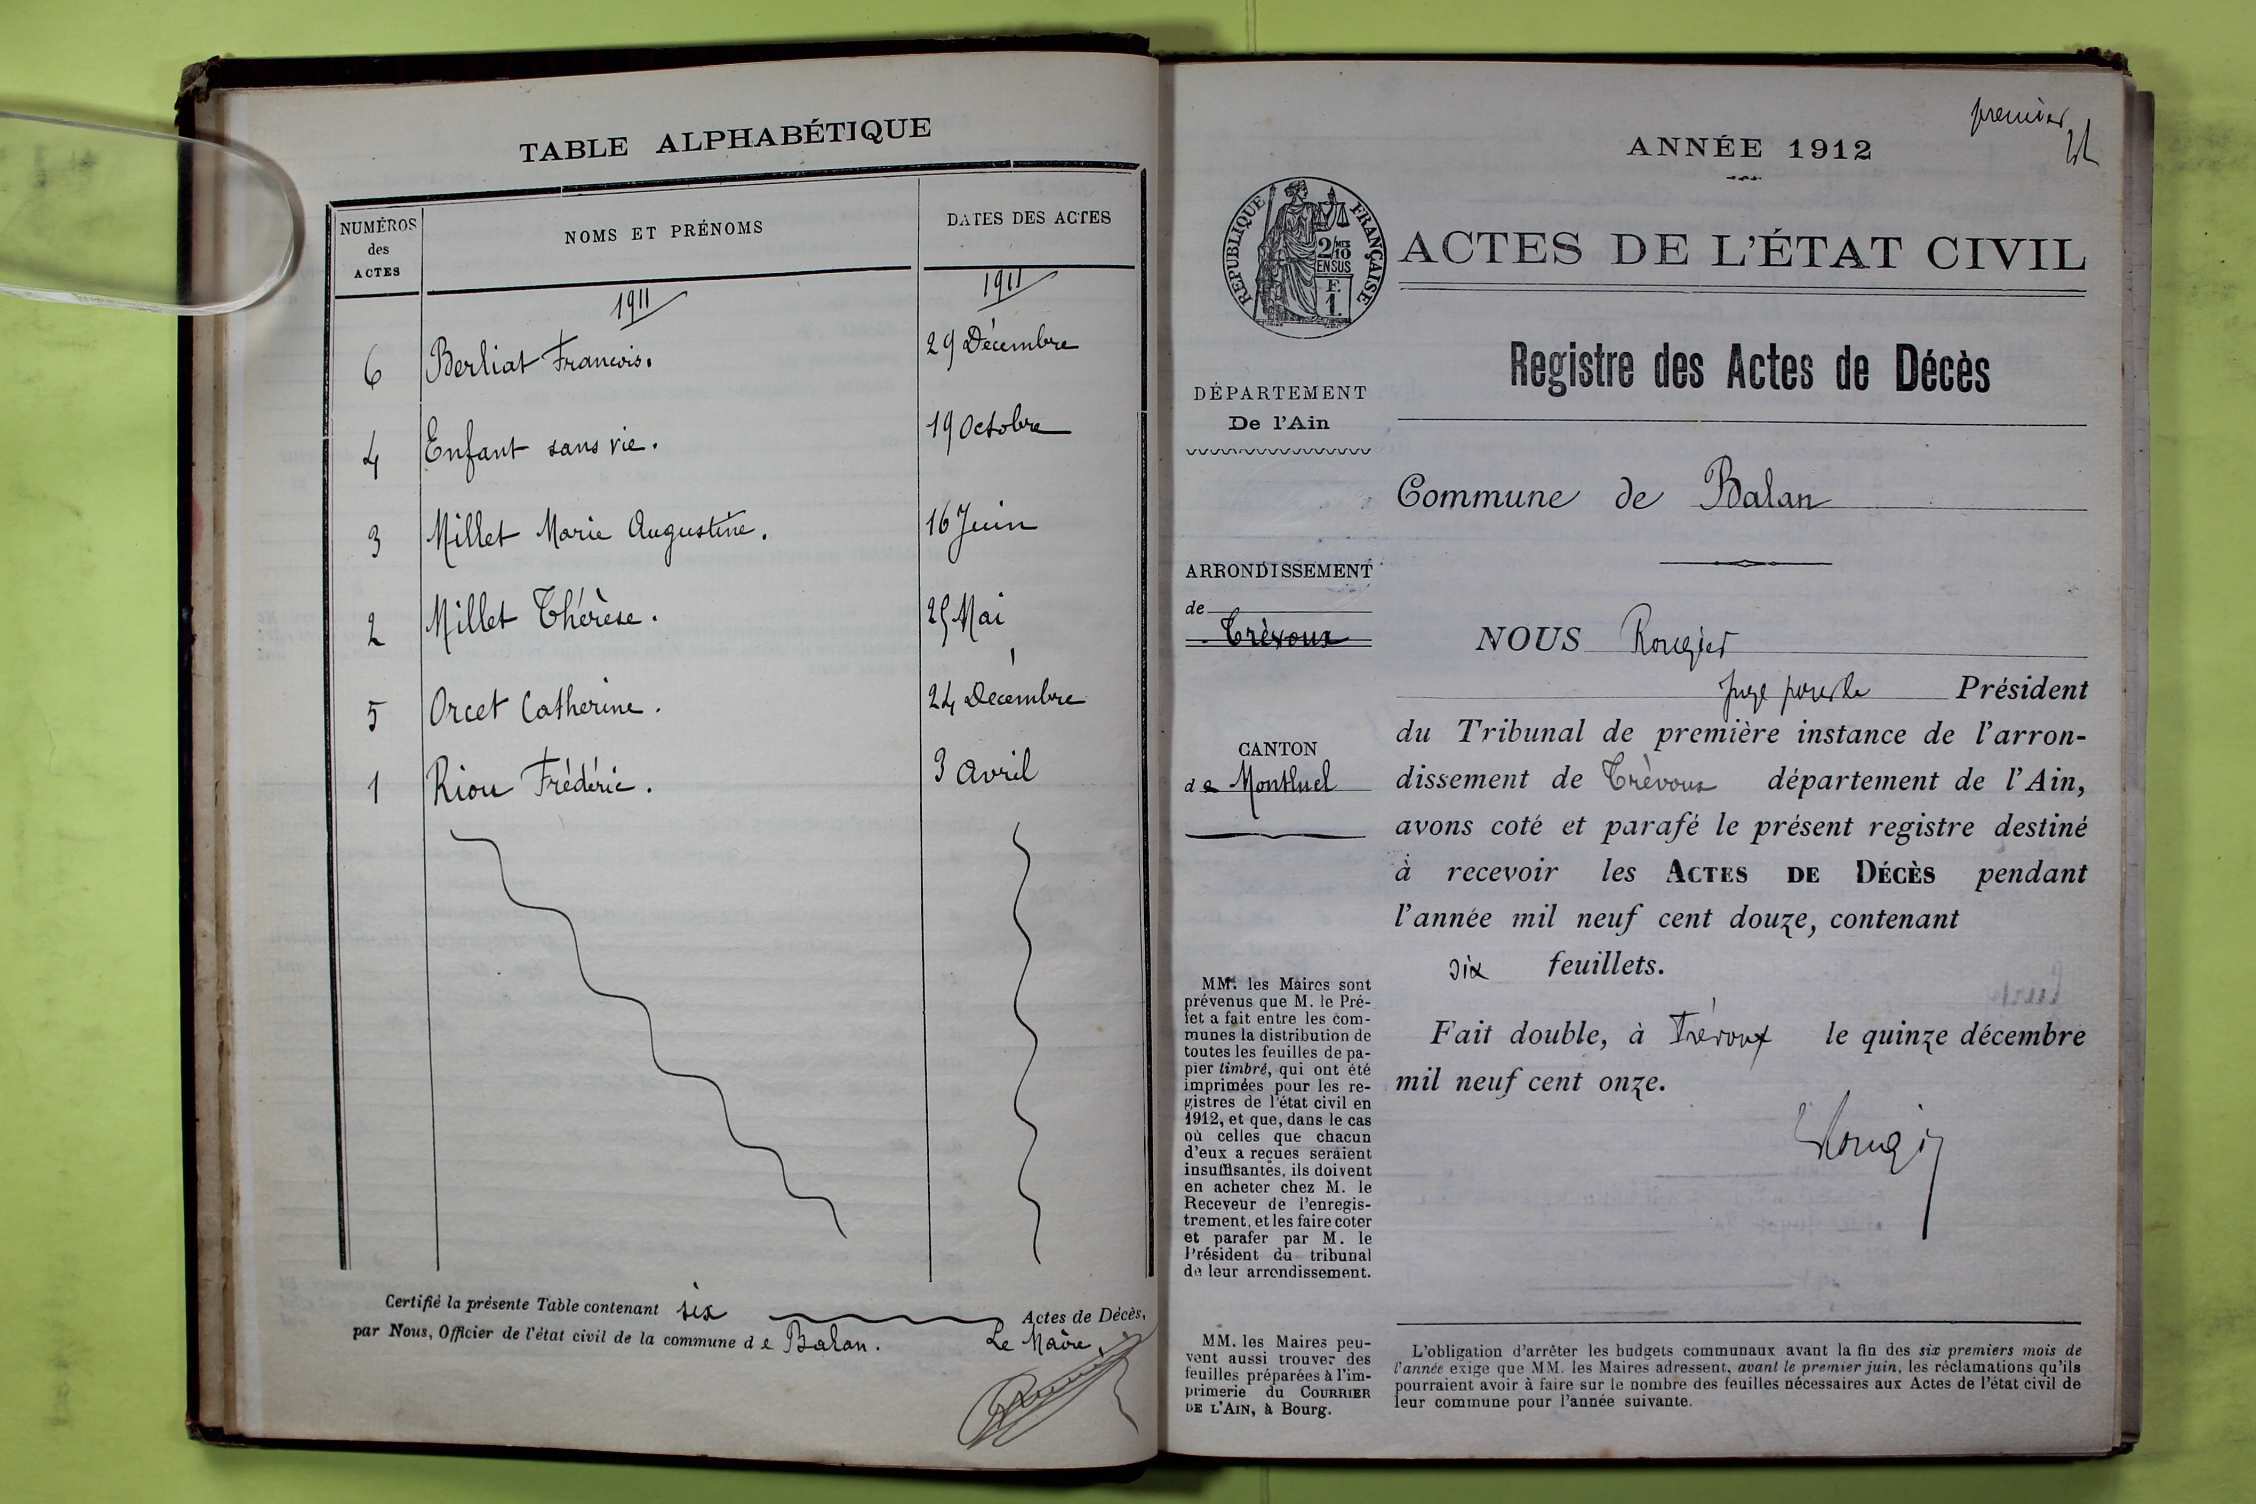 TABLE ALPHABÉTIQUE
NUMÉROS
des
ACTES
NOMS ET PRÉNOMS
DATES DES ACTES
1911
1911
6 Berliat Francois. 29 Décembre
4 Enfant sans vie. 19 Octobre
3 Millet Marie Augustine. 16 Juin
2 Millet Thérèse. 25 Mai
5 Orcet Catherine. 24 Décembre
1 Riou Frédéric. 3 Avril
Certifié la présente Table contenant six Actes de Décès,
par Nous, Officier de l'état civil de la commune de Balan. Le Maire,
premier
ANNÉE 1912
RÉPUBLIQUE FRANÇAISE
2/10MES
EN SUS
F.
1.
ACTES DE L'ÉTAT CIVIL
Registre des Actes de Décès
DÉPARTEMENT
De l'Ain
Commune de Balan
ARRONDISSEMENT
de
Trévoux
CANTON
de Montluel
NOUS Rougier
Juge pour le Président
du Tribunal de première instance de l'arron-
dissement de Trévoux département de l'Ain,
avons coté et parafé le présent registre destiné
à recevoir les ACTES DE DÉCÈS pendant
l'année mil neuf cent douze, contenant
six feuillets.
Fait double, à Trévoux le quinze décembre
mil neuf cent onze.
Rougier
MM. les Maires sont
prévenus que M. le Pré-
fet a fait entre les com-
munes la distribution de
toutes les feuilles de pa-
pier timbré, qui ont été
imprimées pour les re-
gistres de l'état civil en
1912, et que, dans le cas
où celles que chacun
d'eux a reçues seraient
insuffisantes, ils doivent
en acheter chez M. le
Receveur de l'enregis-
trement, et les faire coter
et parafer par M. le
Président du tribunal
de leur arrondissement.
MM. les Maires peu-
vent aussi trouver des
feuilles préparées à l'im-
primerie du COURRIER
DE L'AIN, à Bourg.
L'obligation d'arrêter les budgets communaux avant la fin des six premiers mois de
l'année exige que MM. les Maires adressent, avant le premier juin, les réclamations qu'ils
pourraient avoir à faire sur le nombre des feuilles nécessaires aux Actes de l'état civil de
leur commune pour l'année suivante.